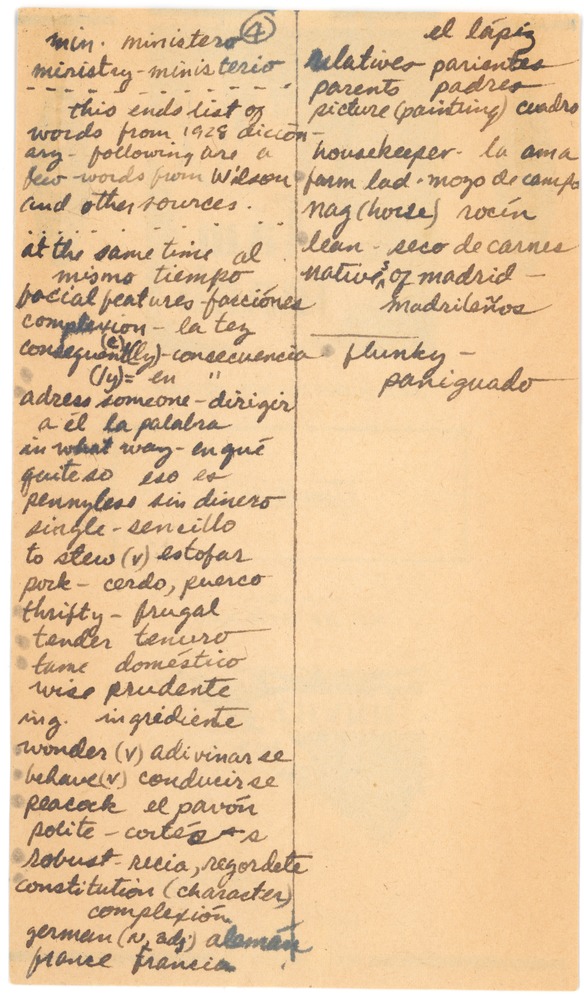 4
min. ministero
ministry - ministerio
this ends list of
words from 1928 diction-
ary - following are a
few words from Wilson
and other sources.
at the same time al
mismo tiempo
facial features - facciónes
complexion - la tez
consequent(ly) - consecuencia
(e)
(ly) = en "
adress someone - dirigir
a él la palabra
in what way - en qué
quite so eso es
pennyless sin dinero
single - sencillo
to stew (v) estofar
pork - cerdo, puerco
thrifty - frugal
tender tenuro
tame doméstico
wise prudente
ing. ingrediente
wonder (v) adivinarse
behave (v) conducirse
peacock el pavón
polite - cortés
robust - recia, regordete
constitution (character)
complexión
german (n, adj.) alemán
france francia
el lápiz
relatives parientes
parents padres
picture (painting) cuadro
housekeeper - la ama
farm lad - mozo de campo
nag (horse) rocín
lean - seco de carnes
natives of madrid -
madrileños
flunky -
paniguado